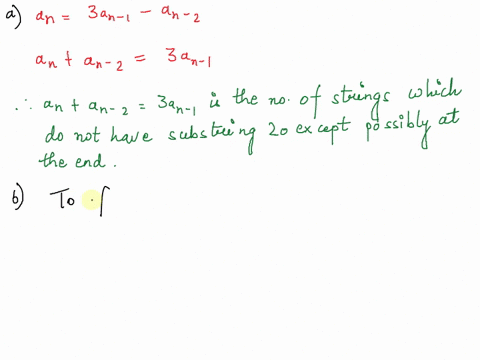 a) aₙ = 3aₙ₋₁ - aₙ₋₂
aₙ + aₙ₋₂ = 3aₙ₋₁
∴ aₙ + aₙ₋₂ = 3aₙ₋₁ is the no. of strings which
do not have substring 20 except possibly at
the end.
b) To